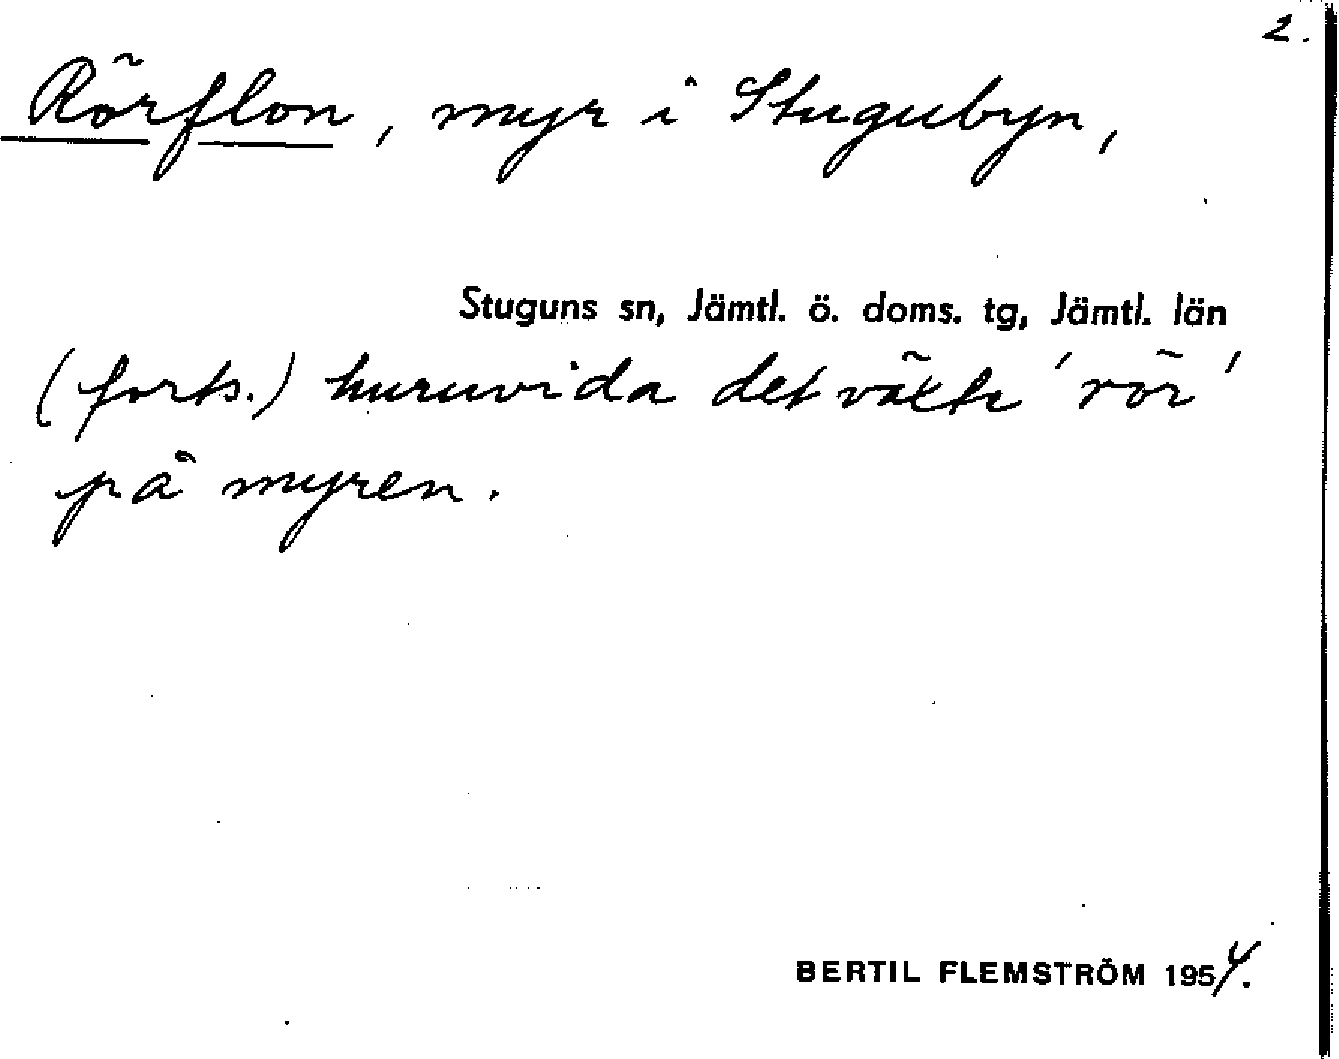 2.
Rörflon, myr i Stugubyn,
Stuguns sn, Jämtl. ö. doms. tg, Jämtl. län
(forts.) huruvida det växte 'rör'
på myren.
BERTIL FLEMSTRÖM 1954.